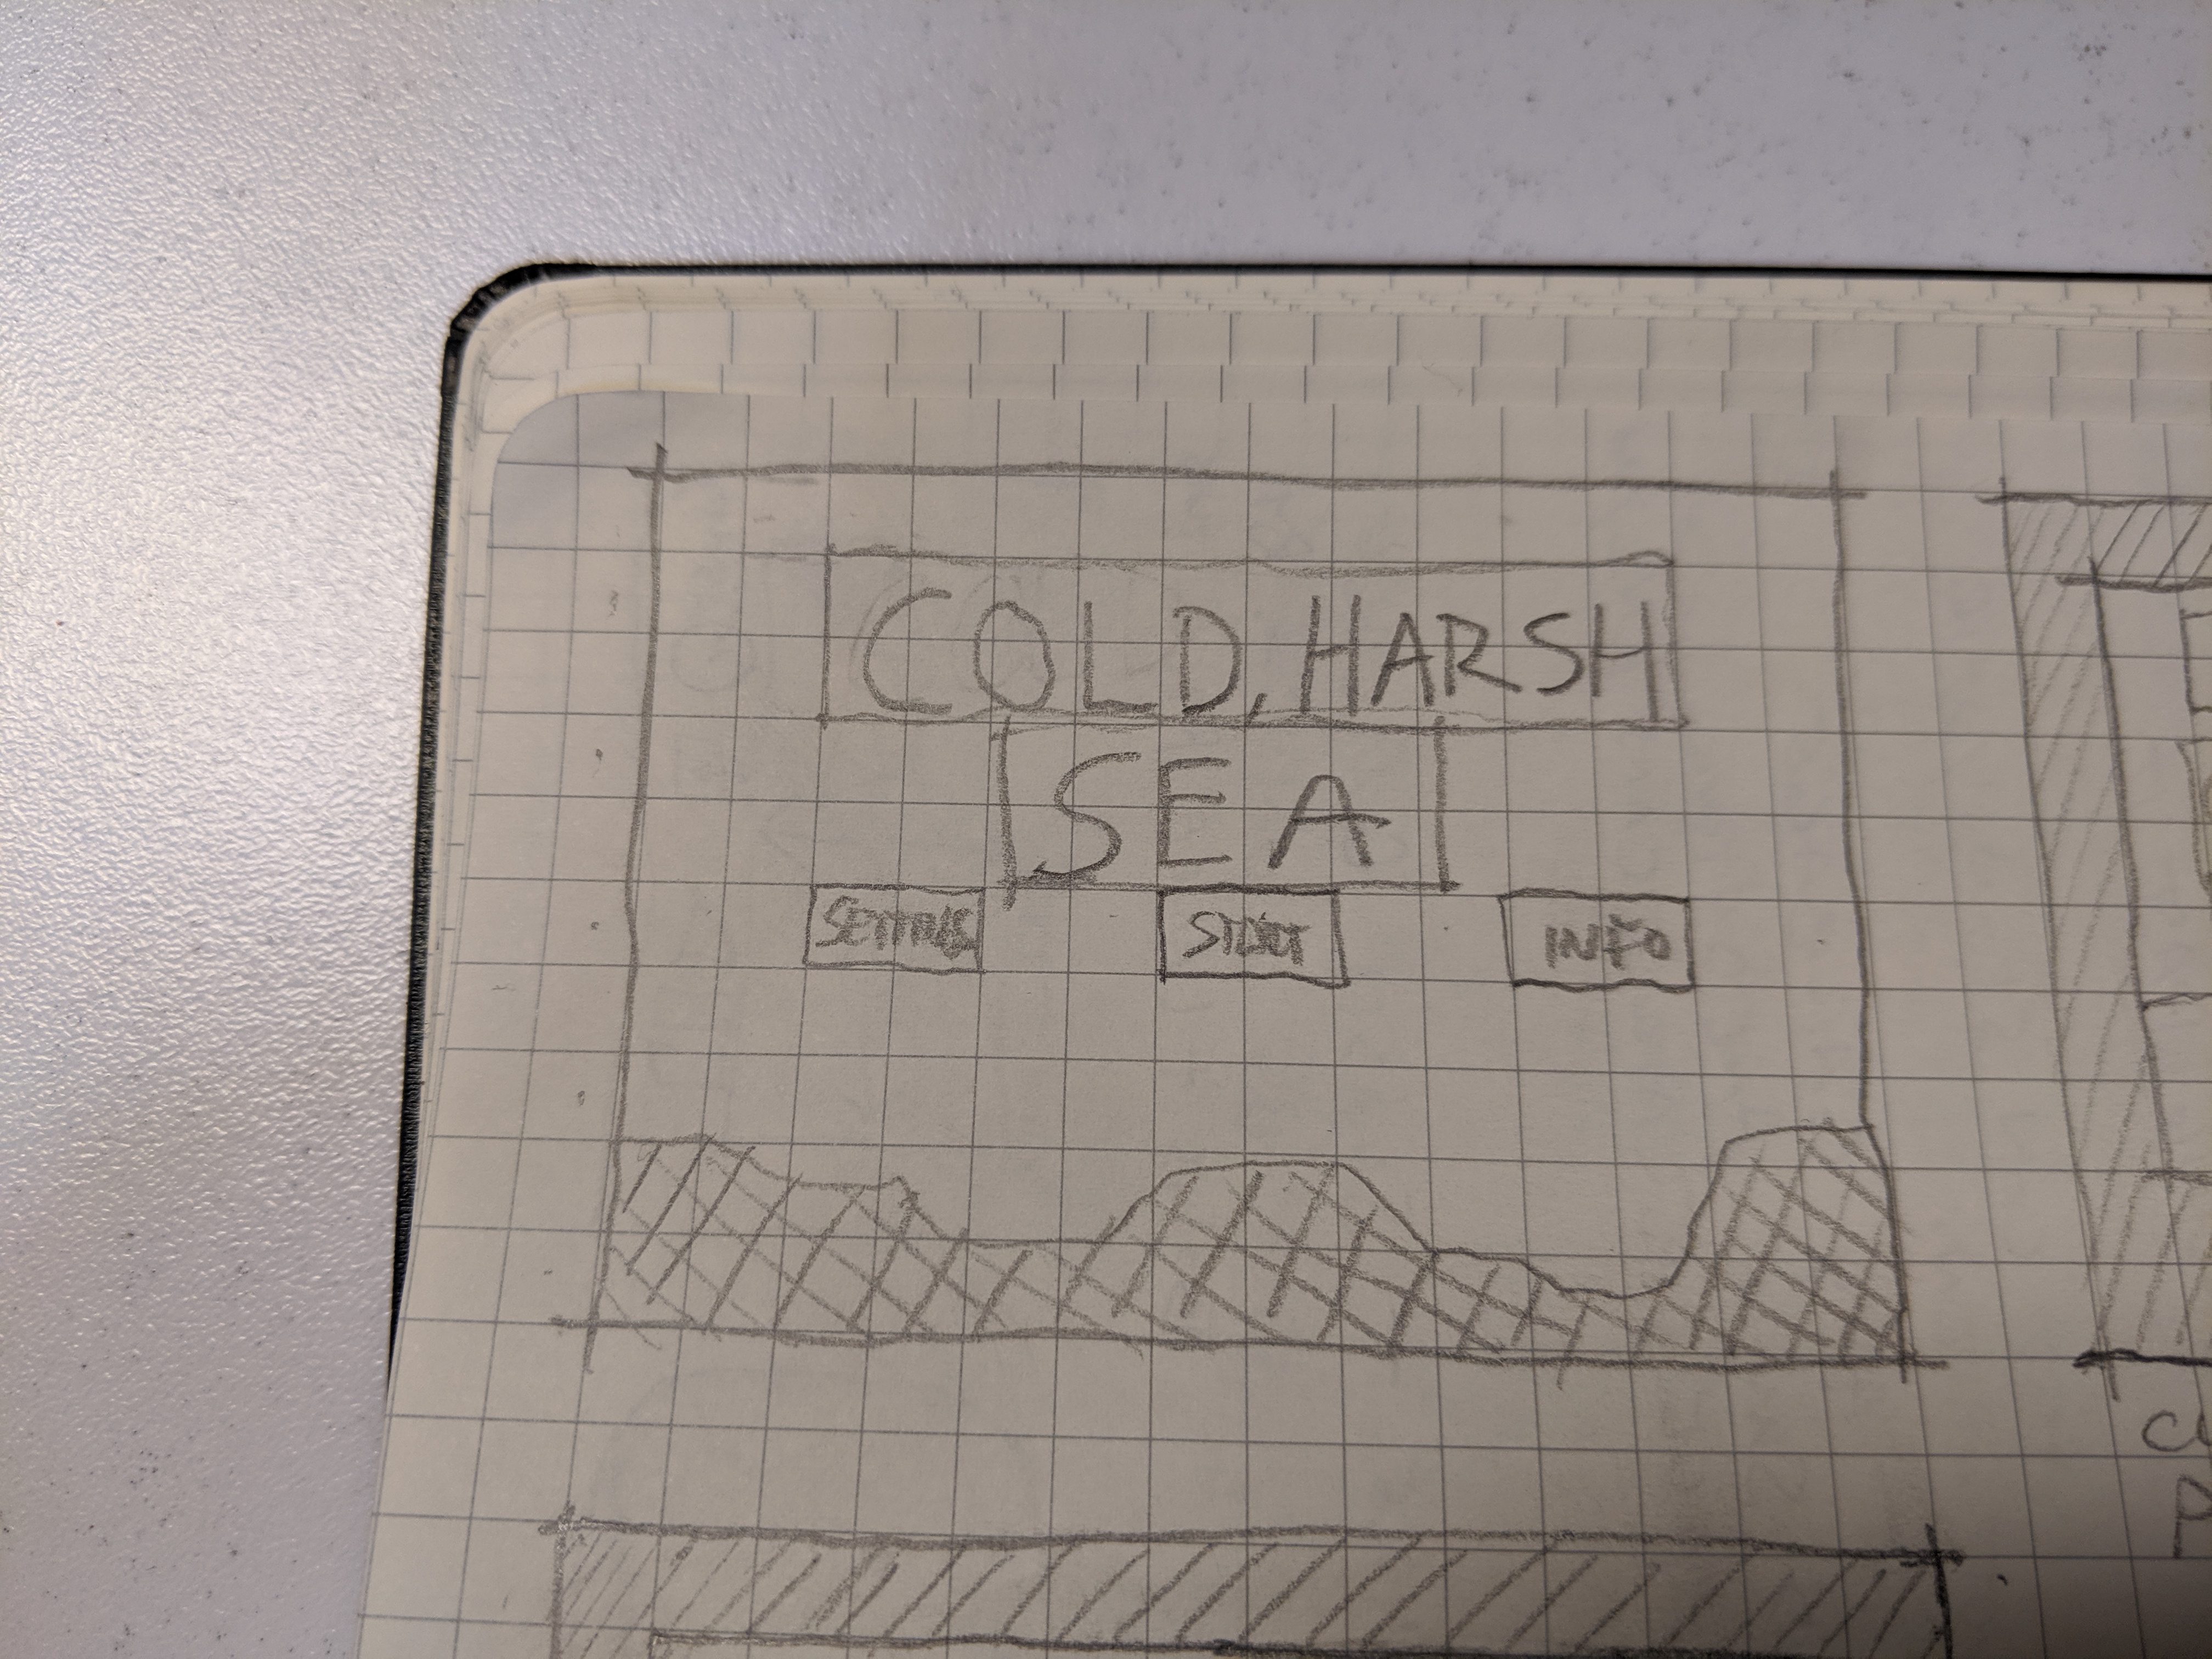 COLD, HARSH
SEA
SETTINGS
START
INFO